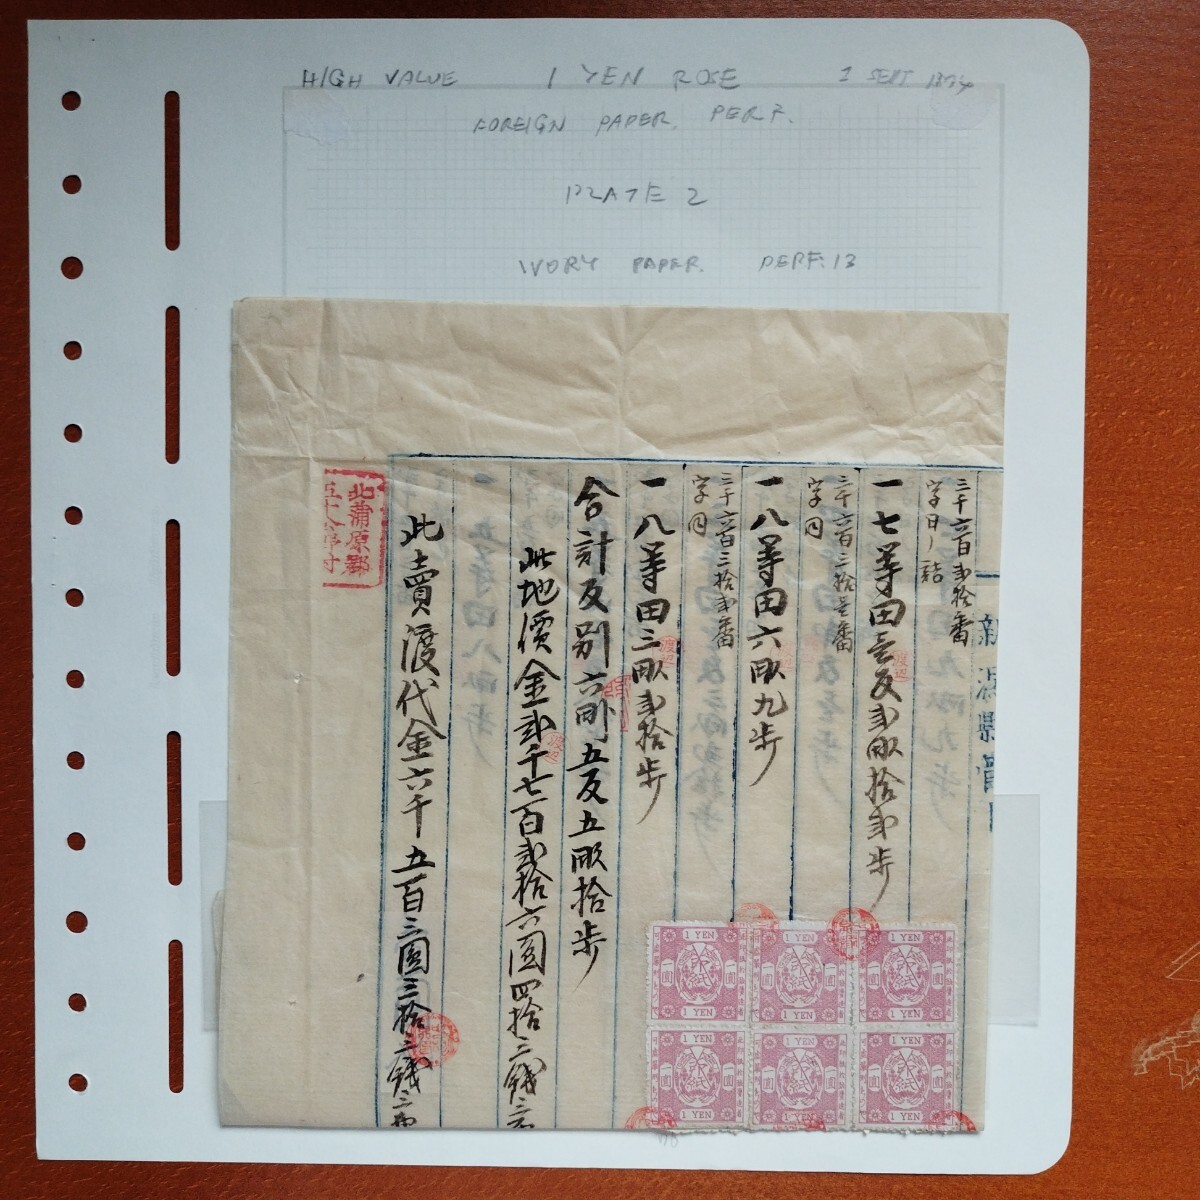 HIGH VALUE 1 YEN ROSE 1 SEPT 1874
FOREIGN PAPER. PERF.
PLATE 2
IVORY PAPER. PERF: 13
新潟縣管
三千六百弐拾番
字日ノ詰
一七等田壱反弐畝拾弐歩
三千六百三拾壱番
字同
一八等田六畝九歩
三千六百三拾弐番
字同
一八等田三畝弐拾歩
合計反別六町五反五畝拾歩
此地價金弐千七百弐拾六圓四拾三錢三
此賣渡代金六千五百三圓三拾三錢三
北蒲原郡
1 YEN
1 YEN
1 YEN
印紙
印紙
印紙
一圓
一圓
一圓
1 YEN
1 YEN
1 YEN
1 YEN
1 YEN
1 YEN
印紙
印紙
印紙
一圓
一圓
一圓
1 YEN
1 YEN
1 YEN